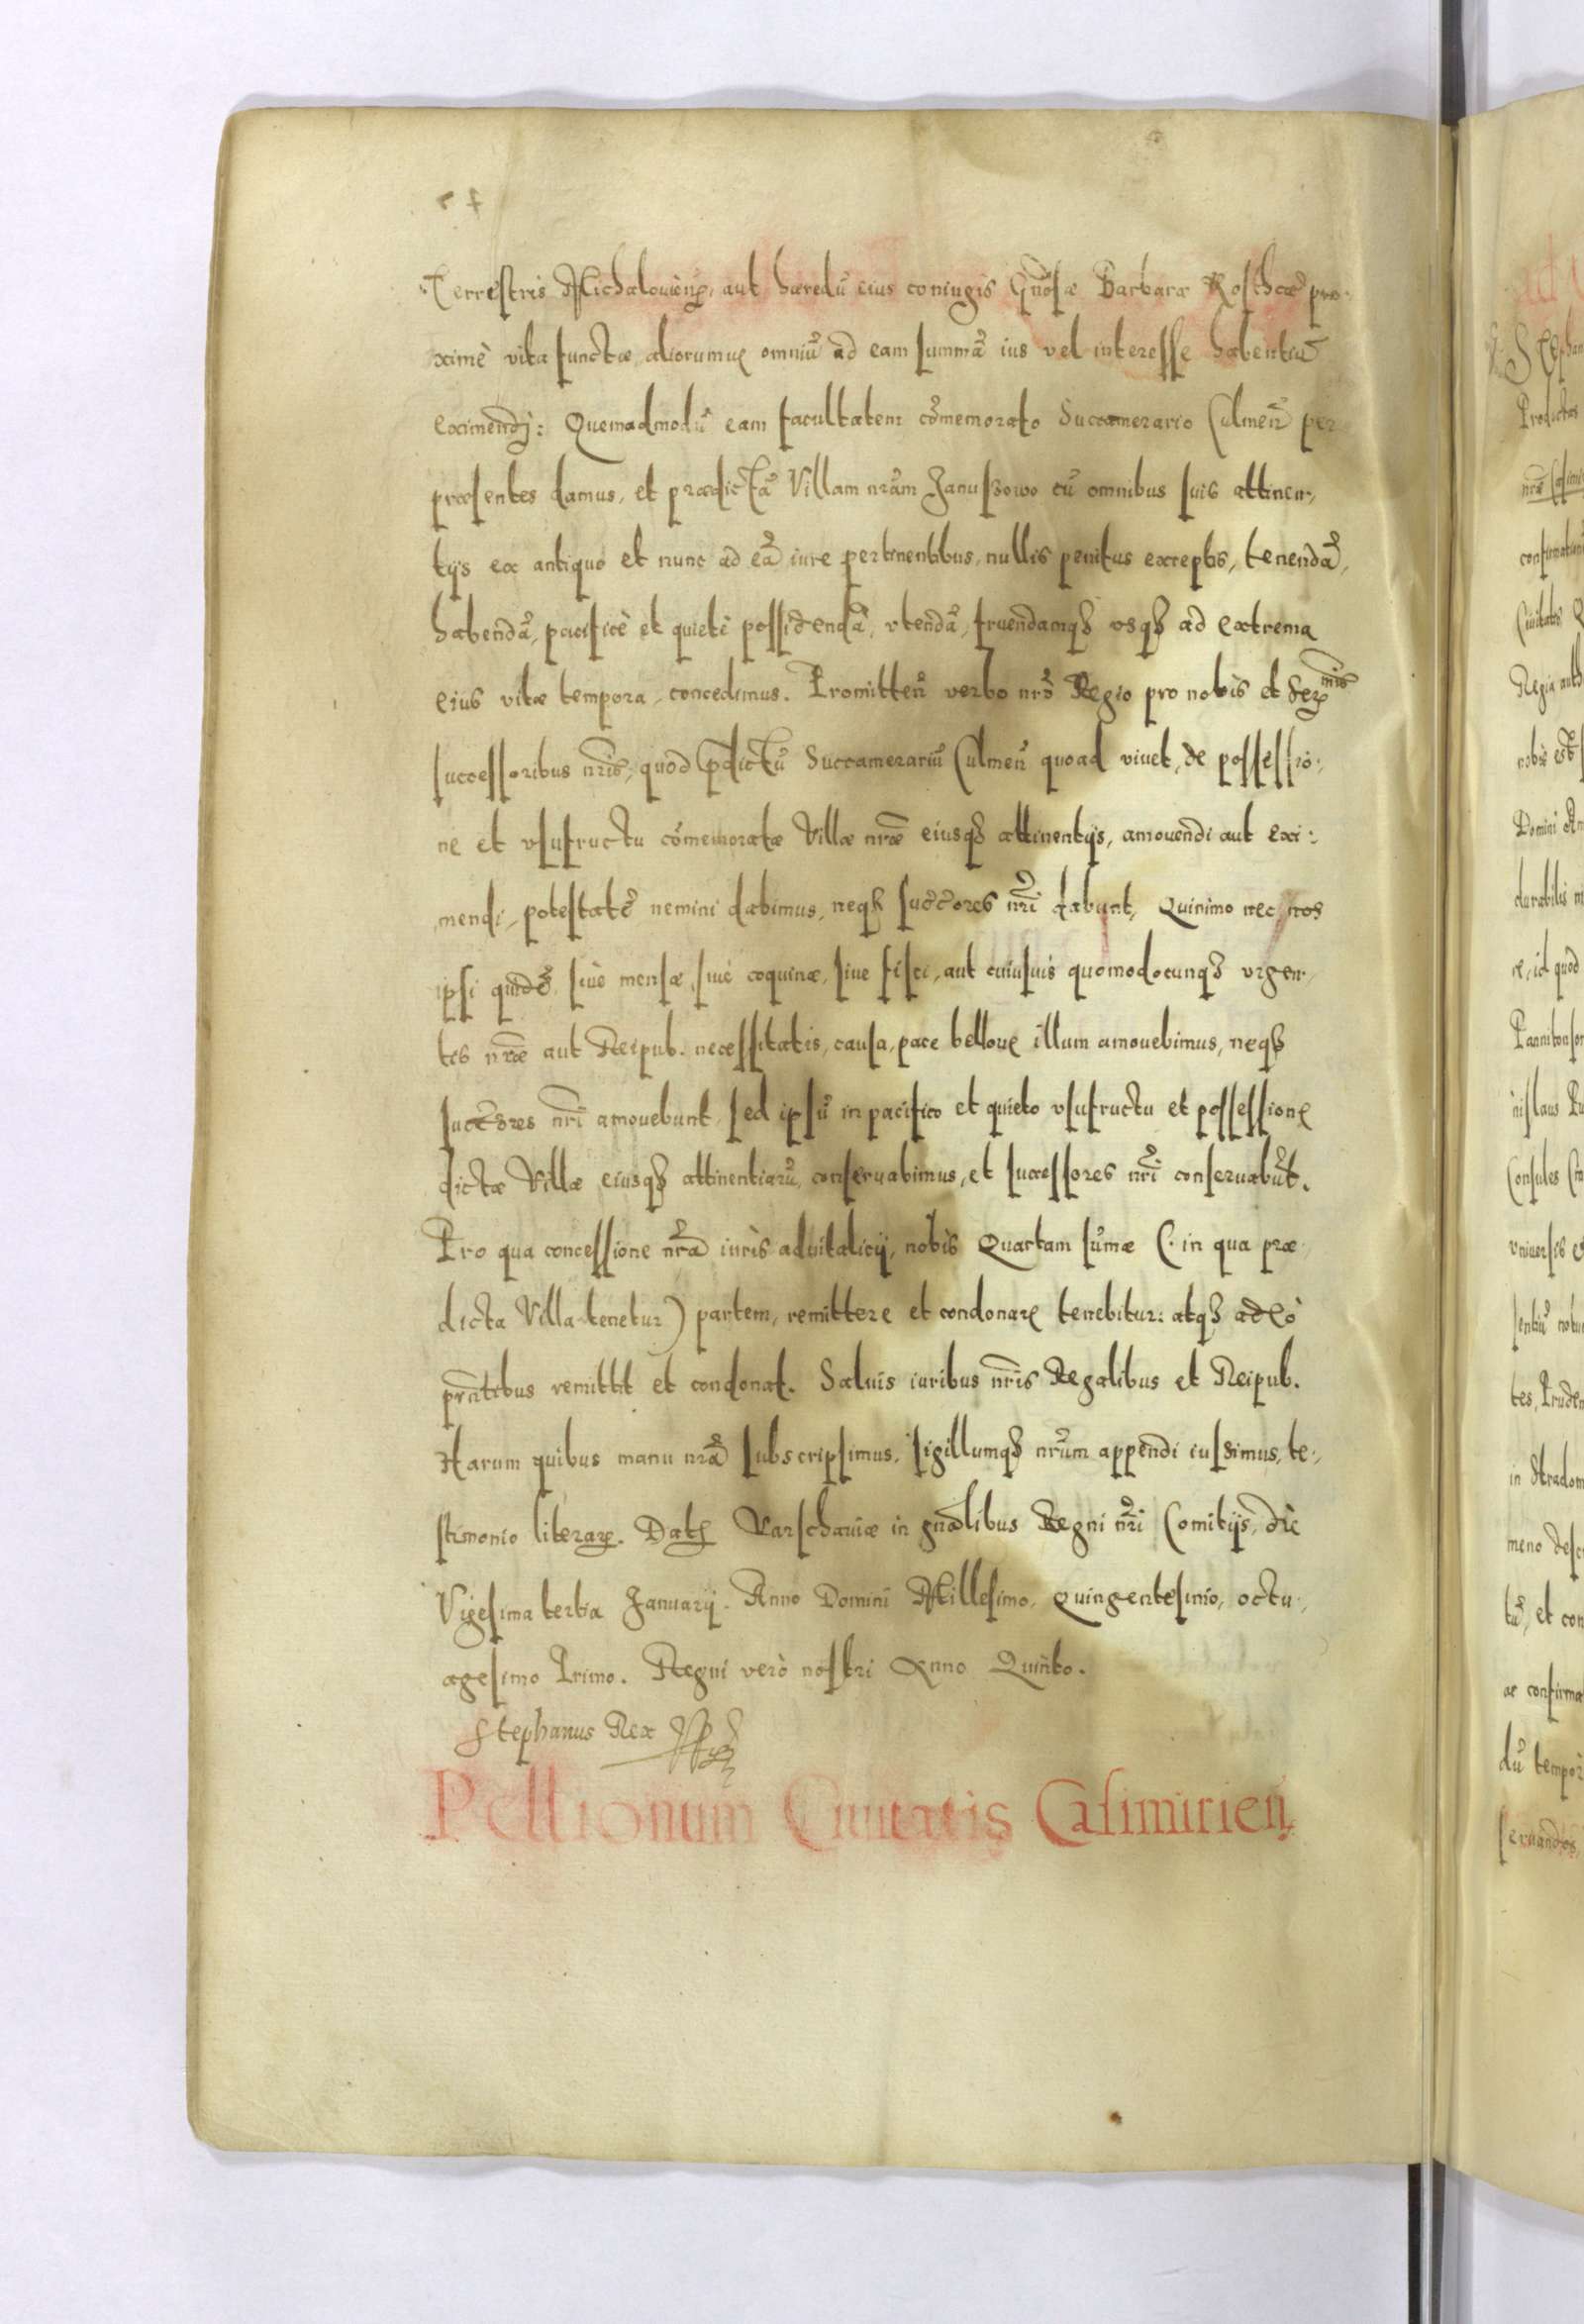 Terrestris Michalouien̄, aut hæredū eius coniugis Gn̄osæ Barbaræ Kosthcæ pro-
ximè vita functæ, aliorumue omniū ad eam summā ius vel interesse habentiū
eximendj: Quemadmodū eam facultatem cōmemorato Succamerario Culmen̄ per
præsentes damus, et prædictā Villam nr̄am Januszowo cū omnibus suis attinen-
tijs ex antiquo et nunc ad eā iure pertinentibus, nullis penitus exceptis, tenendā,
habendā, pacificè et quietè possidendā, vtendā, fruendamqȝ vsqȝ ad extrema
eius vitæ tempora, concedimus. Promitten̄ verbo nr̄o Regio pro nobis et Ser̄mis
successoribus nr̄is, quòd p̄dictū Succamerariū Culmen̄ quoad viuet, de possessio-
ne et vsufructu cōmemoratæ Villæ nr̄æ eiusqȝ attinentijs, amouendi aut exi-
mendi, potestatē nemini dabimus, neqȝ succ̄ores nr̄i dabunt, Quinimo nec nos
ipsi quidē, siuè mensæ, siuè coquinæ, siue fisci, aut cuiusuis quomodocunqȝ vrgen-
tis nr̄æ aut Reipub. necessitatis, causa, pace belloue illum amouebimus, neqȝ
succ̄ores nr̄i amouebunt, sed ipsū in pacifico et quieto vsufructu et possessione
dictæ Villæ eiusqȝ attinentiarū, conseruabimus, et successores nr̄i conseruabūt.
Pro qua concessione nr̄a iuris aduitalicij, nobis Quartam sūmæ (in qua præ-
dicta Villa tenetur) partem, remittere et condonare tenebitur: atqȝ adeò
pr̄ntibus remittit et condonat. Saluis iuribus nr̄is Regalibus et Reipub.
Harum quibus manu nr̄a subscripsimus, sigillumqȝ nr̄um appendi iussimus, te-
stimonio literaꝝ. Dat̄ Varschauiæ in gn̄alibus Regni nr̄i Comitijs, die
Vigesima tertia Januarij. Anno Domini Millesimo, Quingentesimo, octu-
agesimo Primo. Regni verò nostri Anno Quinto.
Stephanus Rex
Pellionum Ciuitatis Casimirien̄